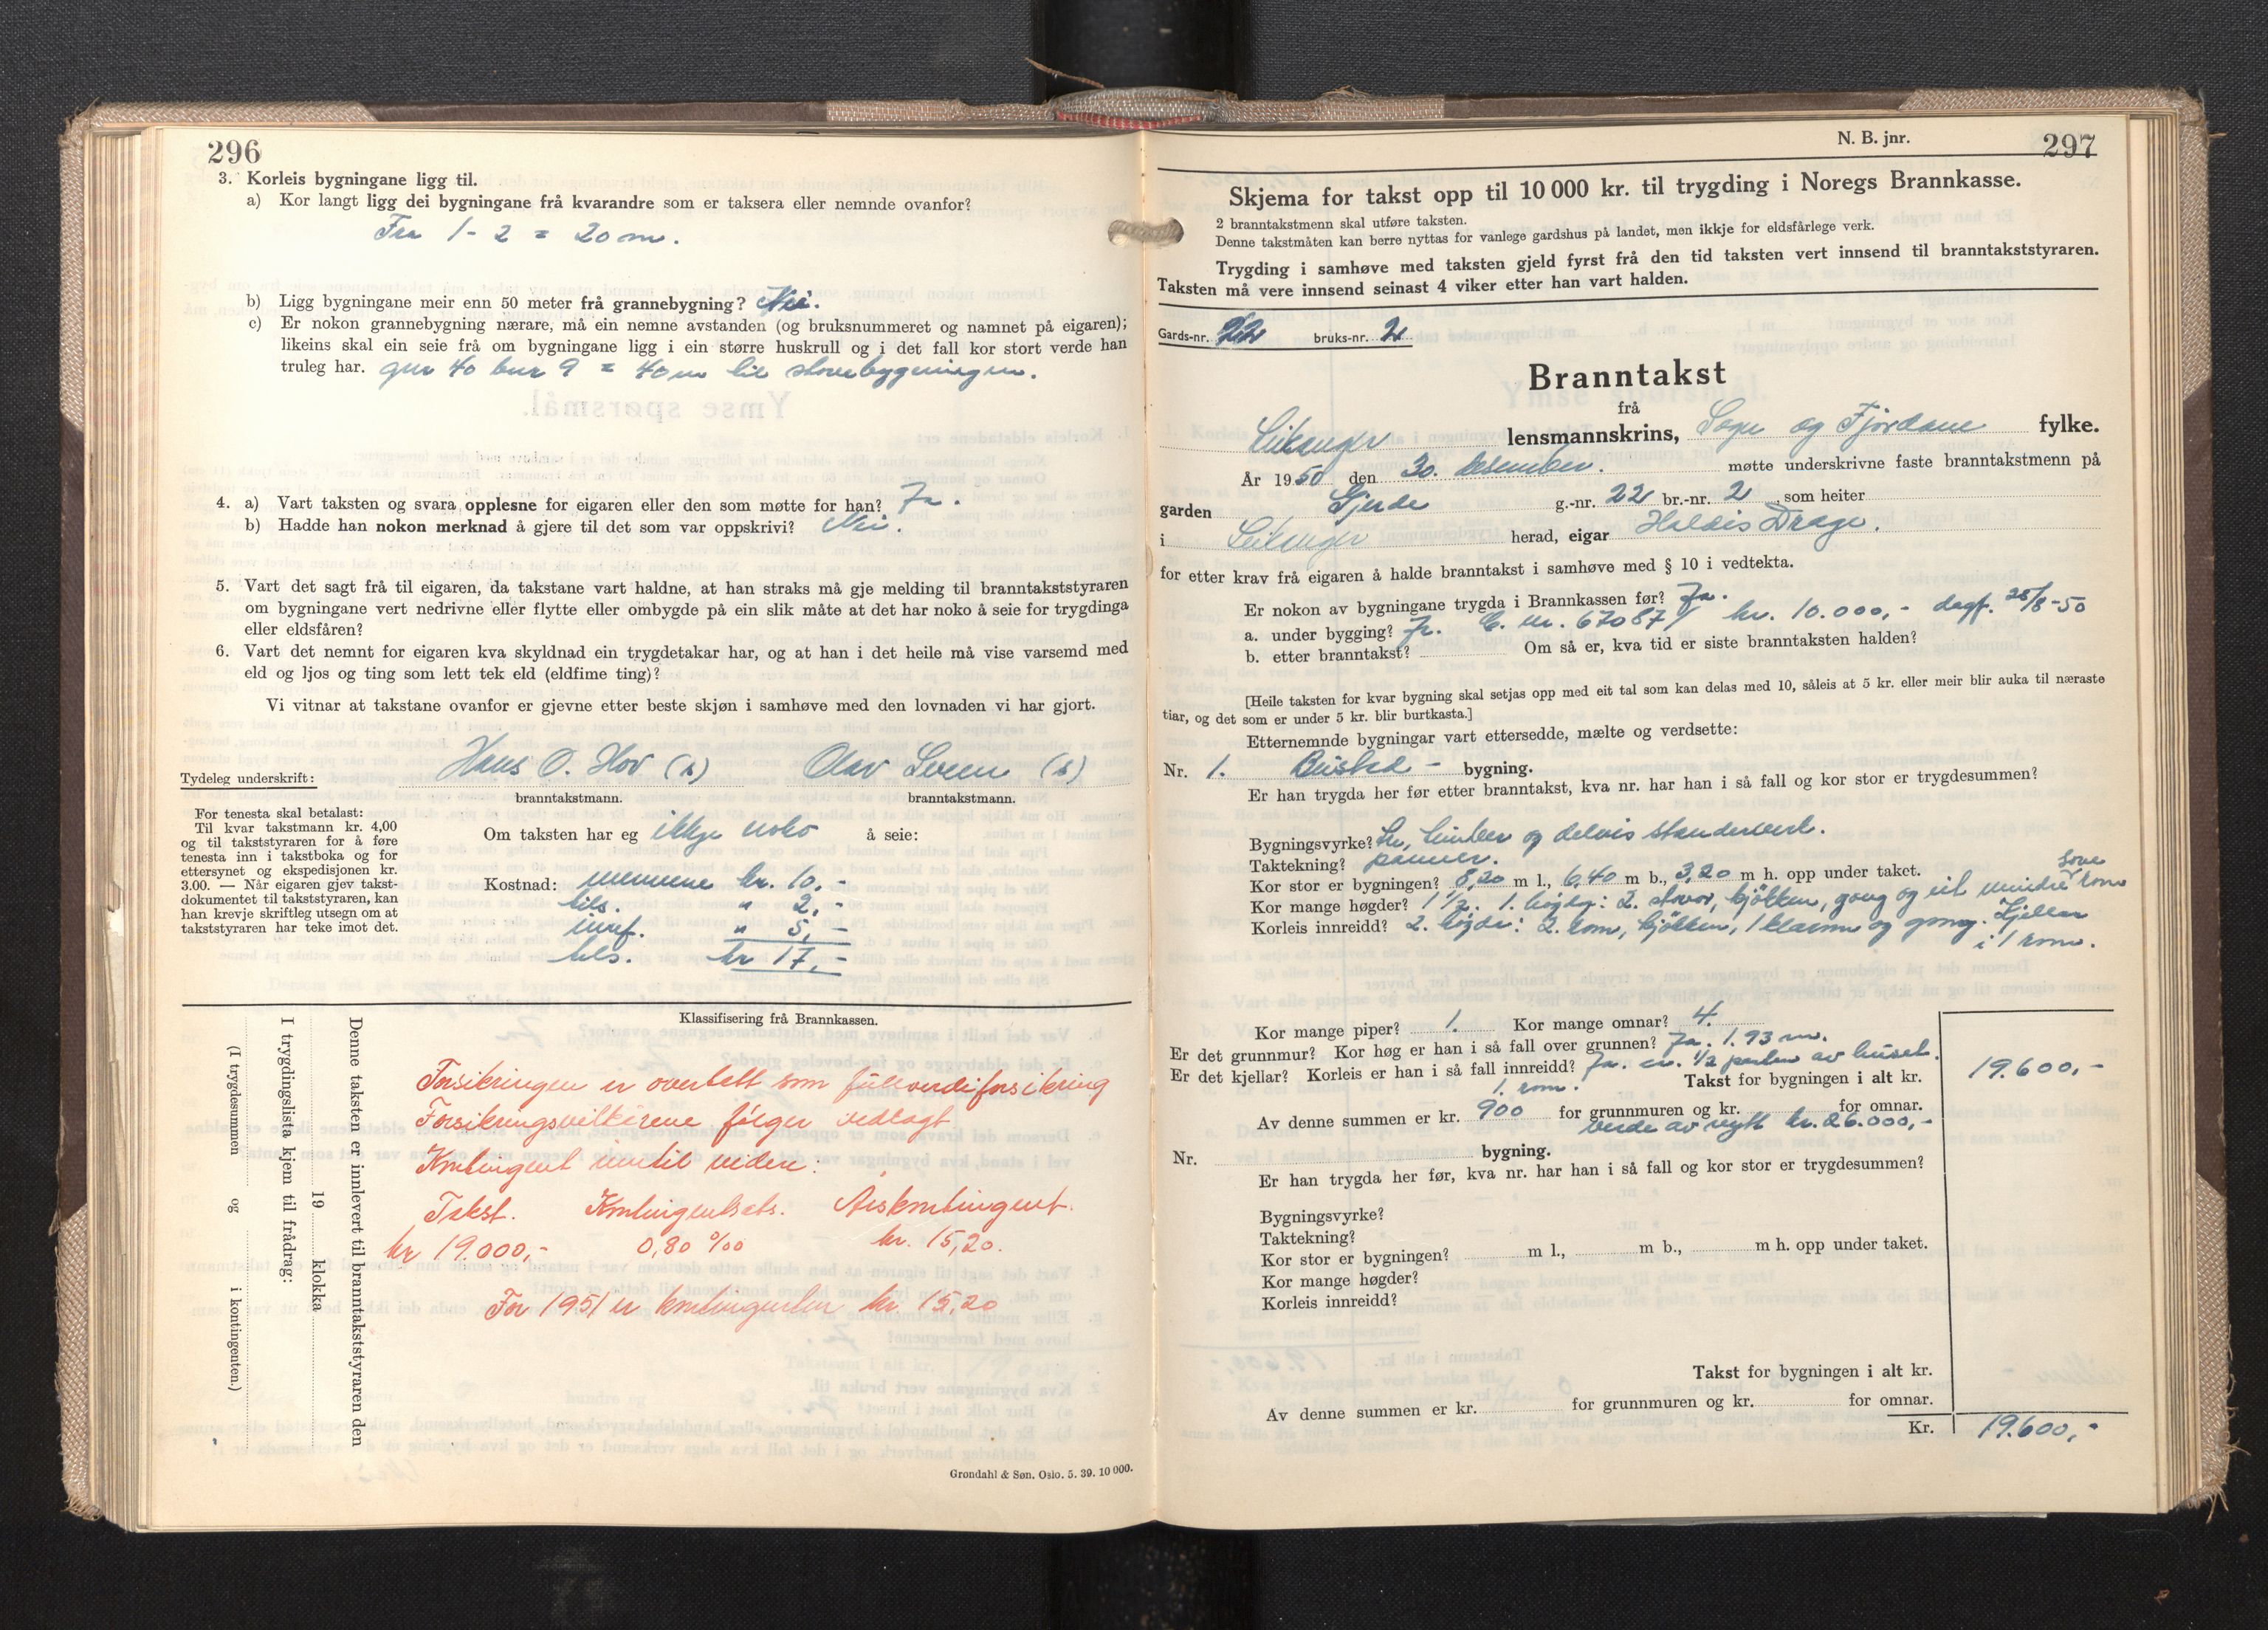 296
3. Korleis bygningane ligg til.
a) Kor langt ligg dei bygningane frå kvarandre som er taksera eller nemnde ovanfor?
Fra 1 - 2 = 20 m.
b) Ligg bygningane meir enn 50 meter frå grannebygning? Nei.
c) Er nokon grannebygning nærare, må ein nemne avstanden (og bruksnummeret og namnet på eigaren);
likeins skal ein seie frå om bygningane ligg i ein større huskrull og i det fall kor stort verde han
truleg har. gnr 40 bnr 9 = 40 m til stovebygningen.
4. a) Vart taksten og svara opplesne for eigaren eller den som møtte for han? Ja.
b) Hadde han nokon merknad å gjere til det som var oppskrivi? Nei.
5. Vart det sagt frå til eigaren, da takstane vart haldne, at han straks må gje melding til branntakststyraren
om bygningane vert nedrivne eller flytte eller ombygde på ein slik måte at det har noko å seie for trygdinga
eller eldsfåren?
6. Vart det nemnt for eigaren kva skyldnad ein trygdetakar har, og at han i det heile må vise varsemd med
eld og ljos og ting som lett tek eld (eldfime ting)?
Vi vitnar at takstane ovanfor er gjevne etter beste skjøn i samhøve med den lovnaden vi har gjort.
Tydeleg underskrift: Hans O. Hov (s) Olav (s)
branntakstmann. branntakstmann.
For tenesta skal betalast:
Til kvar takstmann kr. 4,00
og til takststyraren for å føre
tenesta inn i takstboka og for
ettersynet og ekspedisjonen kr.
3.00. — Når eigaren gjev takst-
dokumentet til takststyraren, kan
han krevje skriftleg utsegn om at
takststyraren har teke imot det.
Om taksten har eg ikkje noko å seie:
Kostnad: mennene kr. 10,-
bils. " 2,-
innf. " 5,-
tils. kr 17,-
Klassifisering frå Brannkassen.
Denne taksten er innlevert til branntakststyraren den
19 klokka
I trygdingslista kjem til frådrag:
(I trygdesummen og i kontingenten.)
Forsikringen er overtatt som fullverdiforsikring
Forsikringsvilkårene følger vedlagt
Kontingent inntil videre:
Takst. Kontingentsats. Årskontingent.
kr 19.000,- 0,80 ‰ kr. 15,20.
For 1951 er kontingenten kr. 15,20
Grøndahl & Søn, Oslo. 5. 39. 10 000.
N. B. jnr.
297
Skjema for takst opp til 10 000 kr. til trygding i Noregs Brannkasse.
2 branntakstmenn skal utføre taksten.
Denne takstmåten kan berre nyttas for vanlege gardshus på landet, men ikkje for eldsfårlege verk.
Trygding i samhøve med taksten gjeld fyrst frå den tid taksten vert innsend til branntakststyraren.
Taksten må vere innsend seinast 4 viker etter han vart halden.
Gards-nr. 22 bruks-nr. 2
Branntakst
frå
Leikanger lensmannskrins, Sogn og Fjordane fylke.
År 1950 den 30. desember. møtte underskrivne faste branntakstmenn på
garden Gjerde g.-nr. 22 br.-nr. 2 som heiter
i Leikanger herad, eigar Haldis Drage.
for etter krav frå eigaren å halde branntakst i samhøve med § 10 i vedtekta.
Er nokon av bygningane trygda i Brannkassen før? Ja.
a. under bygging? Ja. C. nr. 670871 kr. 10.000,- dagf. 28/8-50
b. etter branntakst? Om så er, kva tid er siste branntaksten halden?
[Heile taksten for kvar bygning skal setjas opp med eit tal som kan delas med 10, såleis at 5 kr. eller meir blir auka til næraste
tiar, og det som er under 5 kr. blir burtkasta.]
Etternemnde bygningar vart ettersedde, mælte og verdsette:
Nr. 1. Bustad - bygning.
Er han trygda her før etter branntakst, kva nr. har han i så fall og kor stor er trygdesummen?
Bygningsvyrke? Tre, timber og delvis standerverk.
Taktekning? panner.
Kor stor er bygningen? 8,20 m l., 6,40 m b., 3,20 m h. opp under taket.
Kor mange høgder? 1 1/2. 1. høgde: 2. stover, kjökken, gang og eit mindre sove rom
Korleis innreidd? 2. høgde: 2. rom, kjökken, 1 klærom og gang. Kjellar
i 1 rom.
Kor mange piper? 1. Kor mange omnar? 4.
Er det grunnmur? Kor høg er han i så fall over grunnen? Ja. 1.93 m.
Er det kjellar? Korleis er han i så fall innreidd? Ja. 1/2 parten av huset.
1. rom. Takst for bygningen i alt kr. 19.600,-
Av denne summen er kr. 900 for grunnmuren og kr. for omnar.
verde av nytt kr. 26.000,-
Nr. bygning.
Er han trygda her før, kva nr. har han i så fall og kor stor er trygdesummen?
Bygningsvyrke?
Taktekning?
Kor stor er bygningen? m l., m b., m h. opp under taket.
Kor mange høgder?
Korleis innreidd?
Takst for bygningen i alt kr.
Av denne summen er kr. for grunnmuren og kr. for omnar.
Kr. 19.600,-